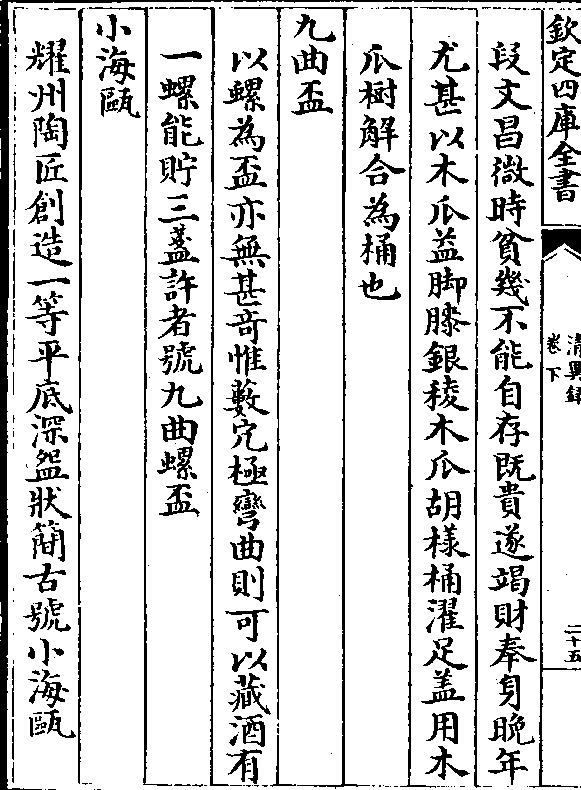 欽定四庫全書
清異録
卷下
二十五
段文昌微時貧幾不能自存既貴遂竭財奉身晩年
尤甚以木瓜益脚膝銀稜木瓜胡様桶濯足盖用木
瓜樹解合為桶也
九曲盃
以螺為盃亦無甚竒惟藪穴極彎曲則可以藏酒有
一螺能貯三盞許者號九曲螺盃
小海甌
耀州陶匠創造一等平底深盌狀簡古號小海甌